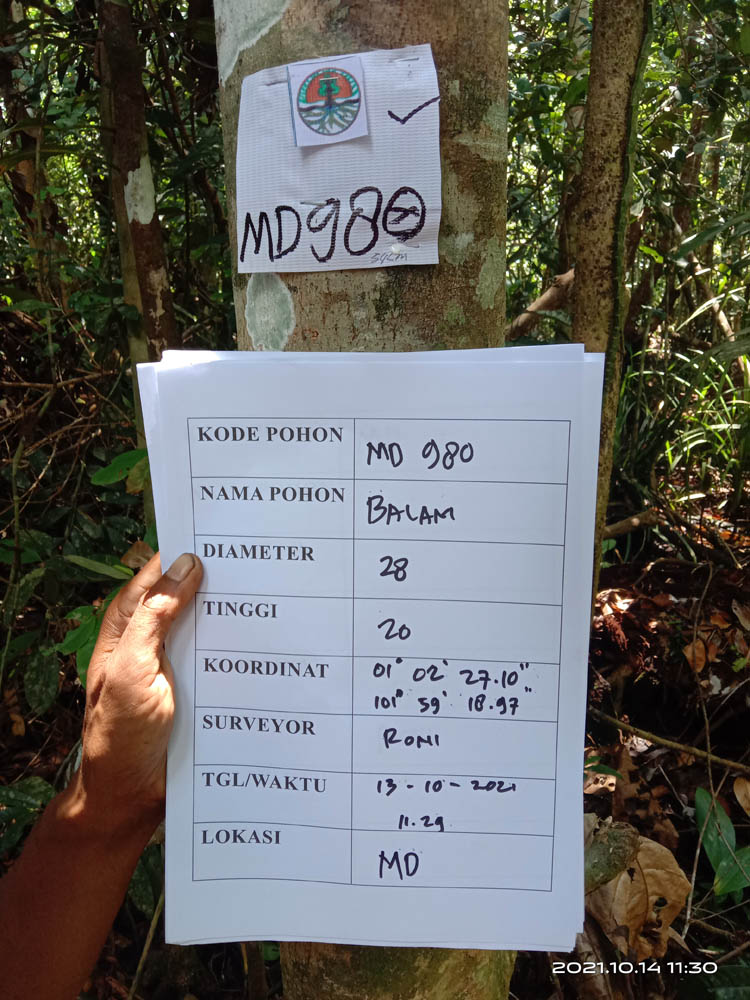 MD980
KODE POHON MD 980
NAMA POHON BALAM
DIAMETER 28
TINGGI 20
KOORDINAT 01° 02' 27.10"
101° 59' 18.97"
SURVEYOR RONI
TGL/WAKTU 13-10-2021
11.29
LOKASI MD
2021.10.14 11:30